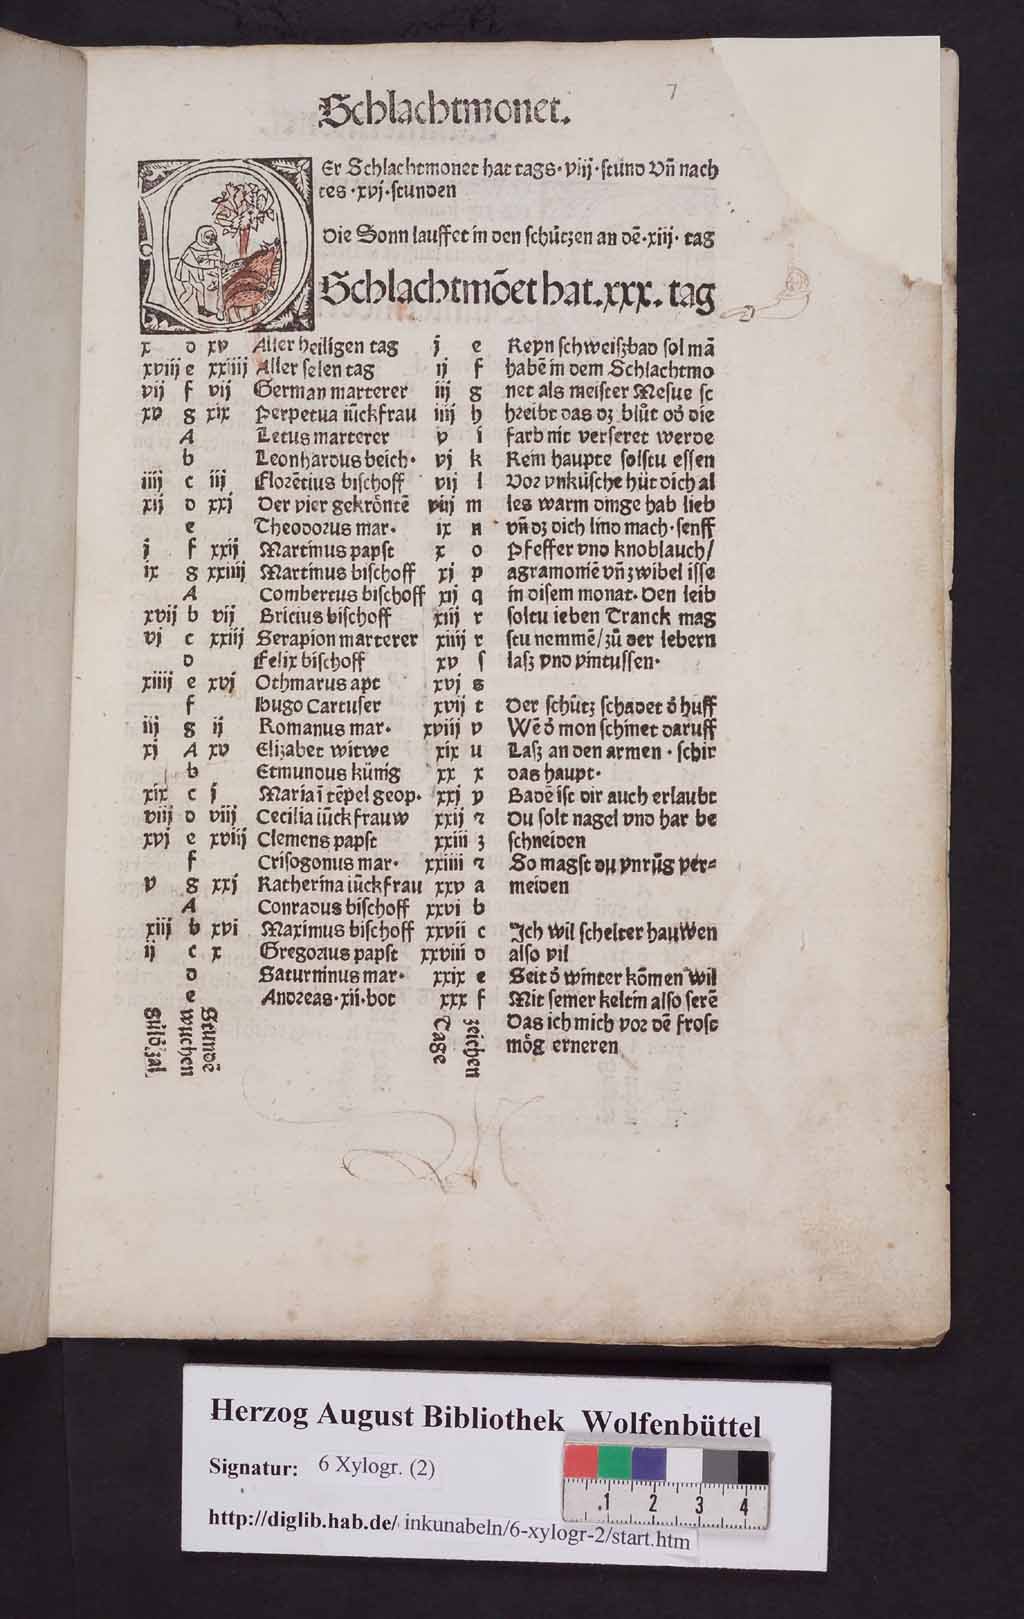 7
Schlachtmonet.
Er Schlachtmonet hat tags·viij·stund vñ nach
tes·xvj·stunden
Die Sonn lauffet in den schützen an dē·xiij·tag
Schlachtmōet hat.xxx.tag
x d xv Aller heiligen tag j e Keyn schweißbad sol mā
xviij e xxiiij Aller selen tag ij f habē in dem Schlachtmo
vij f vij German marterer iij g net als meister Mesue sc
xv g xix Perpetua iūckfrau iiij h hreibt das dz blůt od̄ die
A Letus marterer v i farb nit verseret werde
b Leonhardus beich· vj k Rein haupte solstu essen
iiij c iij Florētius bischoff vij l Vor vnküsche hüt dich al
xij d xxj Der vier gekrôntē viij m les warm dinge hab lieb
e Theodorus mar· ix n vñ dz dich lind mach·senff
j f xxij Martinus papst x o Pfeffer vnd knoblauch/
ix g xxiiij Martinus bischoff xj p agramoniē vñ zwibel isse
A Combertus bischoff xij q in disem monat. Den leib
xvij b vij Bricius bischoff xiij r soltu ieben Tranck mag
vj c xxiij Serapion marterer xiiij r stu nemmē/zů der lebern
d Felix bischoff xv ſ laß vnd vintussen·
xiiij e xvj Othmarus apt xvj s
f Hugo Cartuser xvij t Der schütz schadet d̄ huff
iij g ij Romanus mar· xviij v Wē d̄ mon schinet daruff
xj A xv Elizabet witwe xix u Laß an den armen·schir
b Etmundus künig xx x das haupt·
xix c j Maria ī tēpel geop. xxj y Badē ist dir auch erlaubt
viij d viij Cecilia iūckfrauw xxij z Du solt nagel vnd har be
xvj e xviij Clemens papst xxiii ʒ schneiden
f Crisogonus mar· xxiiii ꝛ So magst du vnrüg ver=
v g xxj Katherina iūckfrau xxv a meiden
A Conradus bischoff xxvi b
xiij b xvi Maximus bischoff xxvii c Ich wil schelter hauwen
ij c x Gregorius papst xxviii d also vil
d Saturninus mar· xxix e Seit d̄ winter kōmen wil
e Andreas·xii·bot xxx f Mit seiner keltin also serē
Das ich mich vor dē frost
môg erneren
Gůld̄.zal.
wuchen
Stundē
Tage
zeichen
Herzog August Bibliothek Wolfenbüttel
Signatur: 6 Xylogr. (2)
http://diglib.hab.de/ inkunabeln/6-xylogr-2/start.htm
1 2 3 4